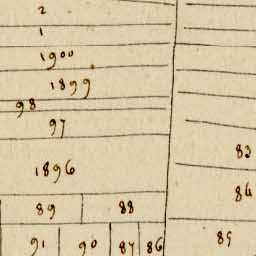 2
1
1900
1899
98
97
83
1896
84
89 88
91 90 87 86 85